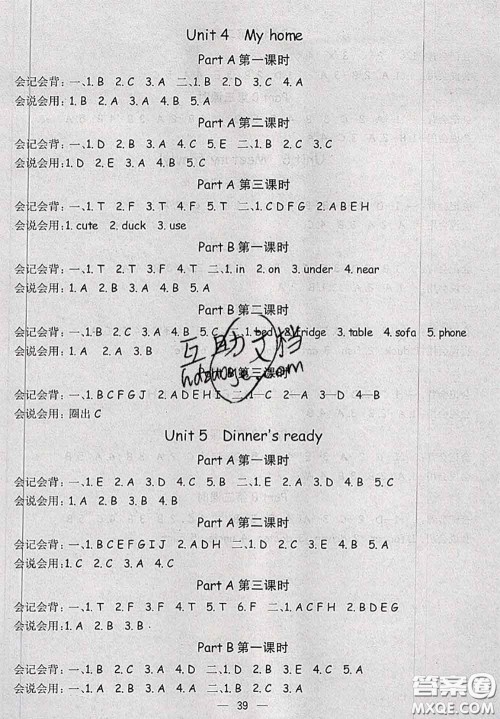 Unit 4 My home
Part A 第一课时
会记会背:一、1.B 2.C 3.A 二、1.B 2.D 3.C 4.A
会说会用:1.B 2.A 3.A 4.B 5.A
Part A 第二课时
会记会背:一、1.D 2.B 3.E 4.A 5.C 二、1.B 2.C 3.C
会说会用:1.D 2.E 3.A 4.B 5.C
Part A 第三课时
会记会背:一、1.T 2.F 3.T 4.F 5.F 二、1.CDFG 2.ABEH
会说会用:1.cute 2.duck 3.use
Part B 第一课时
会记会背:一、1.T 2.F 3.T 4.T 二、1.in 2.on 3.under 4.near
会说会用:1.A 2.B 3.A
Part B 第二课时
会记会背:一、1.B 2.C 3.A 4.B 5.C 二、1.bed 2.fridge 3.table 4.sofa 5.phone
会说会用:1.A 2.B 3.A
Part B 第三课时
会记会背:一、1.BCFGJ 2.ADEHI 二、1—C 2—A 3—D 4—B
会说会用:圈出C
Unit 5 Dinner's ready
Part A 第一课时
会记会背:一、1.E 2.A 3.D 4.B 5.C 二、1.A 2.B 3.A 4.B 5.C
会说会用:1.A 2.B 3.B 4.B
Part A 第二课时
会记会背:一、1.BCEFGIJ 2.ADH 二、1.C 2.D 3.A 4.B 5.A
会说会用:1.A 2.A 3.C 4.C
Part A 第三课时
会记会背:一、1.T 2.F 3.F 4.T 5.T 二、1.ACFH 2.BDEG
会说会用:1.A 2.B 3.B
Part B 第一课时
会记会背:一、1.B 2.C 3.D 4.A 二、1.B 2.A 3.B 4.B 5.A
— 39 —
互助文档
hdzuoye.com
答案圈
MXQE.COM